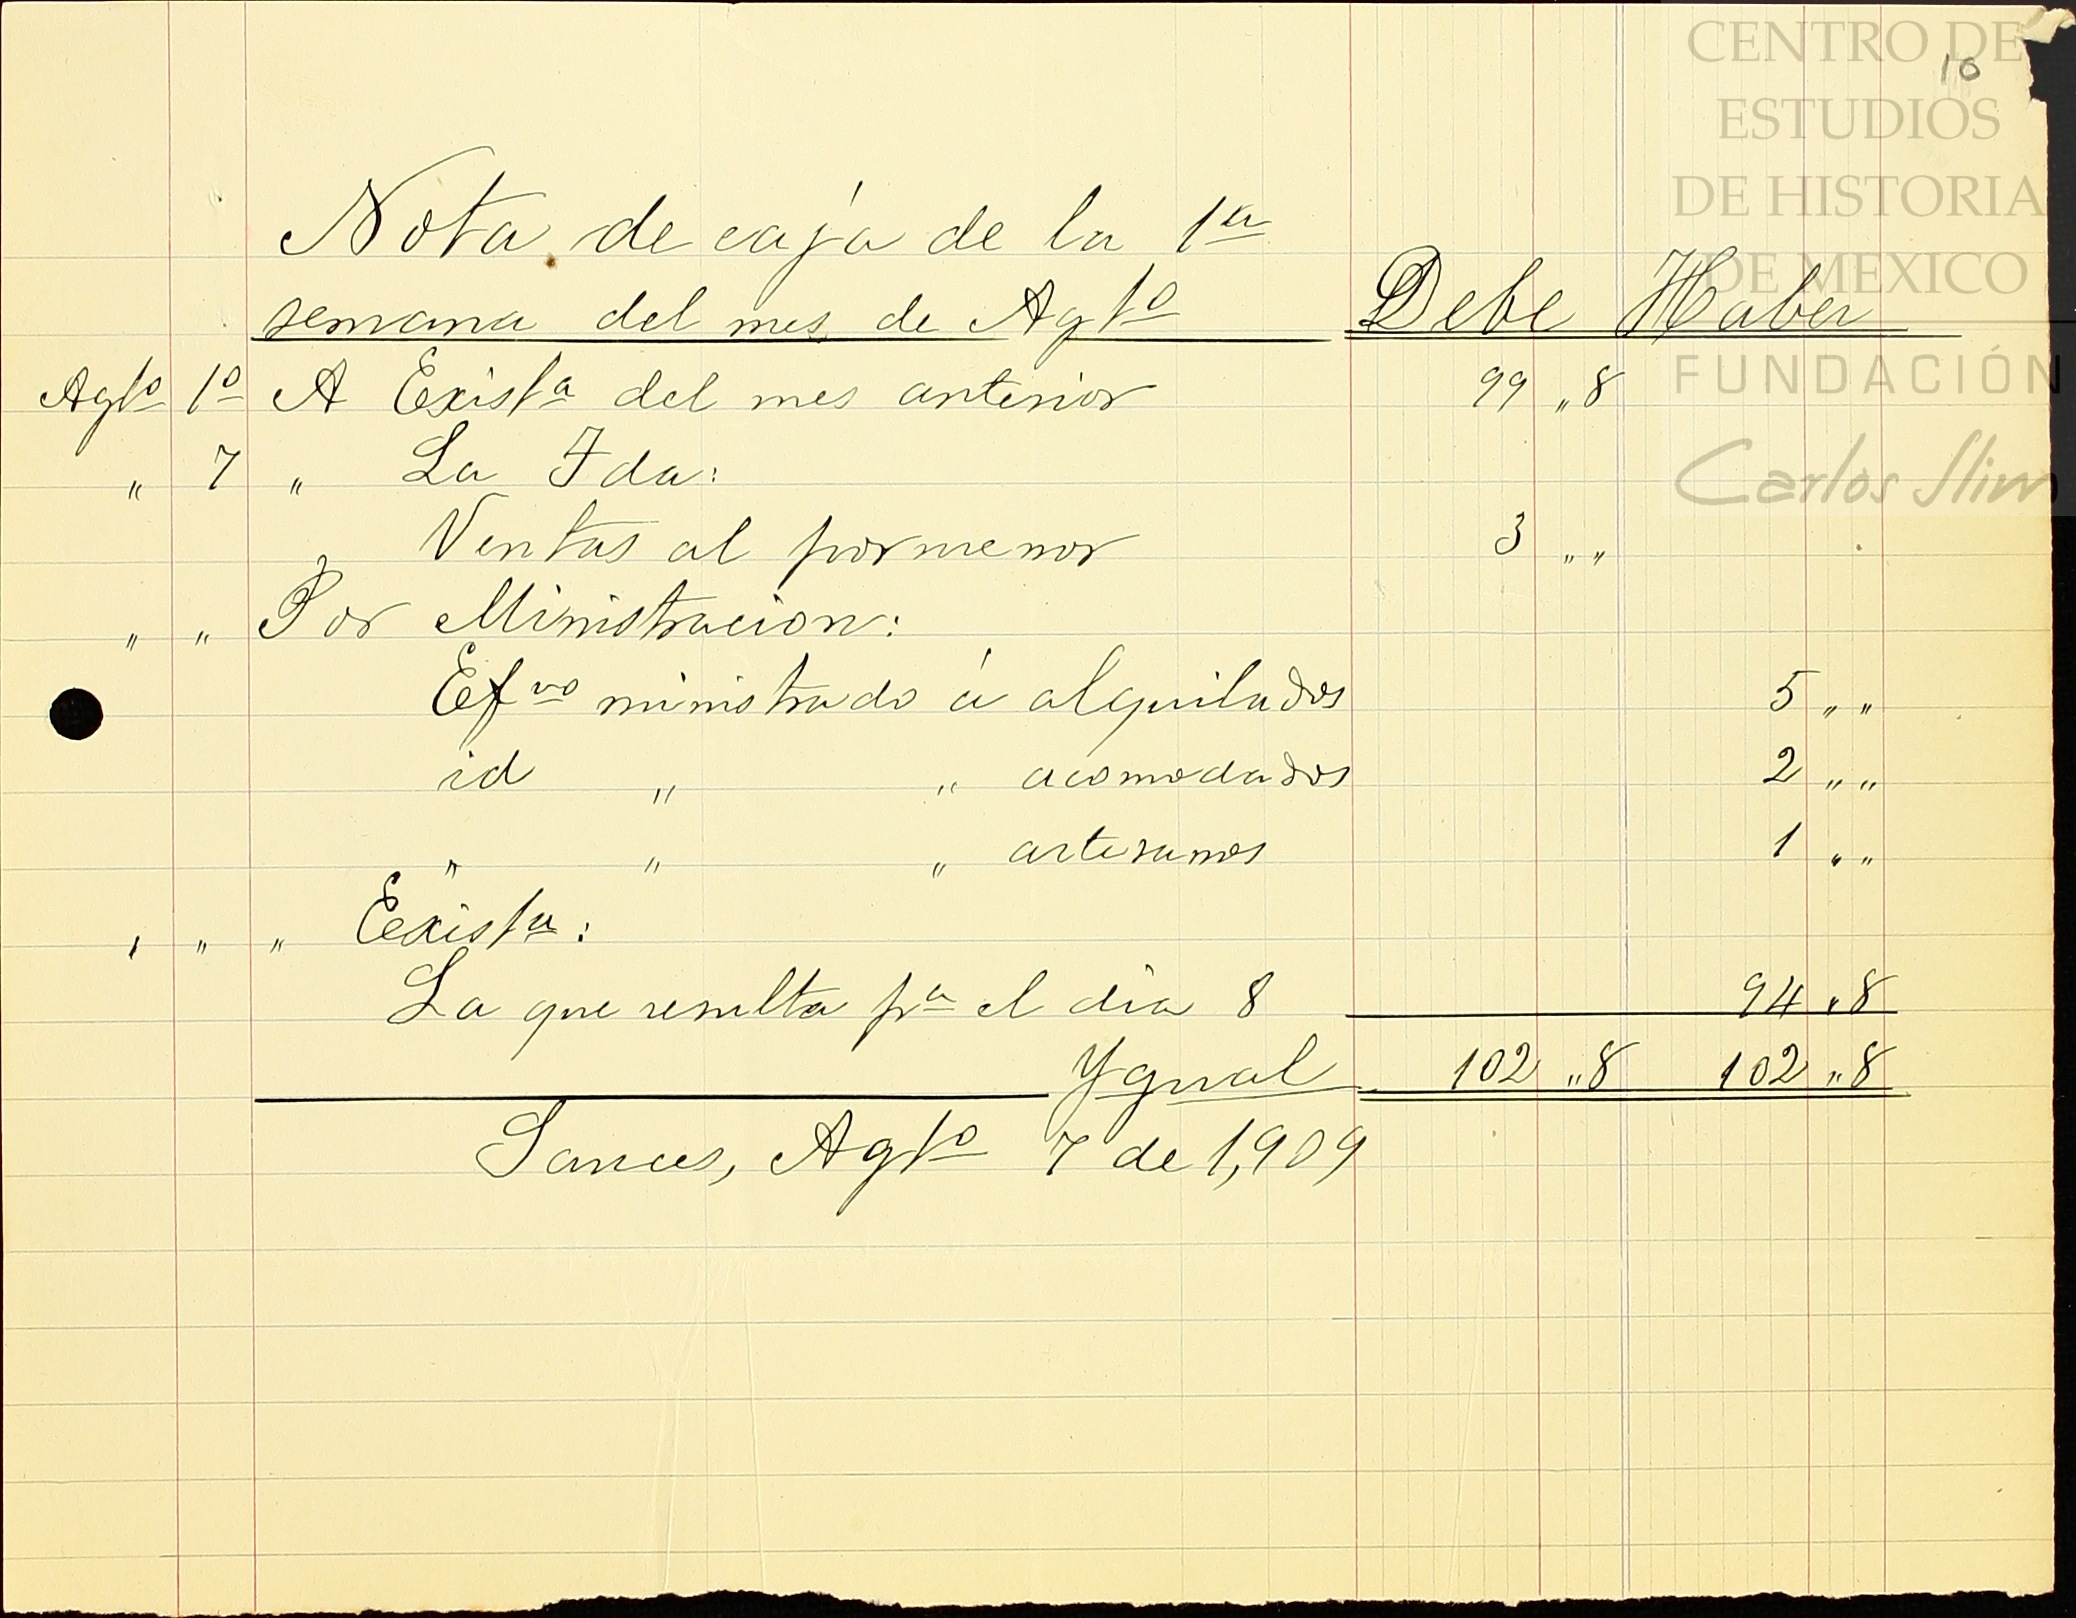 10
CENTRO DE
ESTUDIOS
DE HISTORIA
DE MEXICO
FUNDACIÓN
Carlos Slim
Nota de caja de la 1ra
semana del mes de Agto Debe Haber
Agto 1o A Exista del mes anterior 99 „8
„ 7 „ La Fda:
Ventas al pormenor 3 „ „
„ „ Por Ministracion:
Efvo ministrado á alquilados 5 „ „
id „ „ acomodados 2 „ „
„ „ „ artesanos 1 „ „
„ „ „ Exista:
La que resulta pa el dia 8 94 „8
Ygual 102 „8 102 „8
Sances, Agto 7 de 1,909